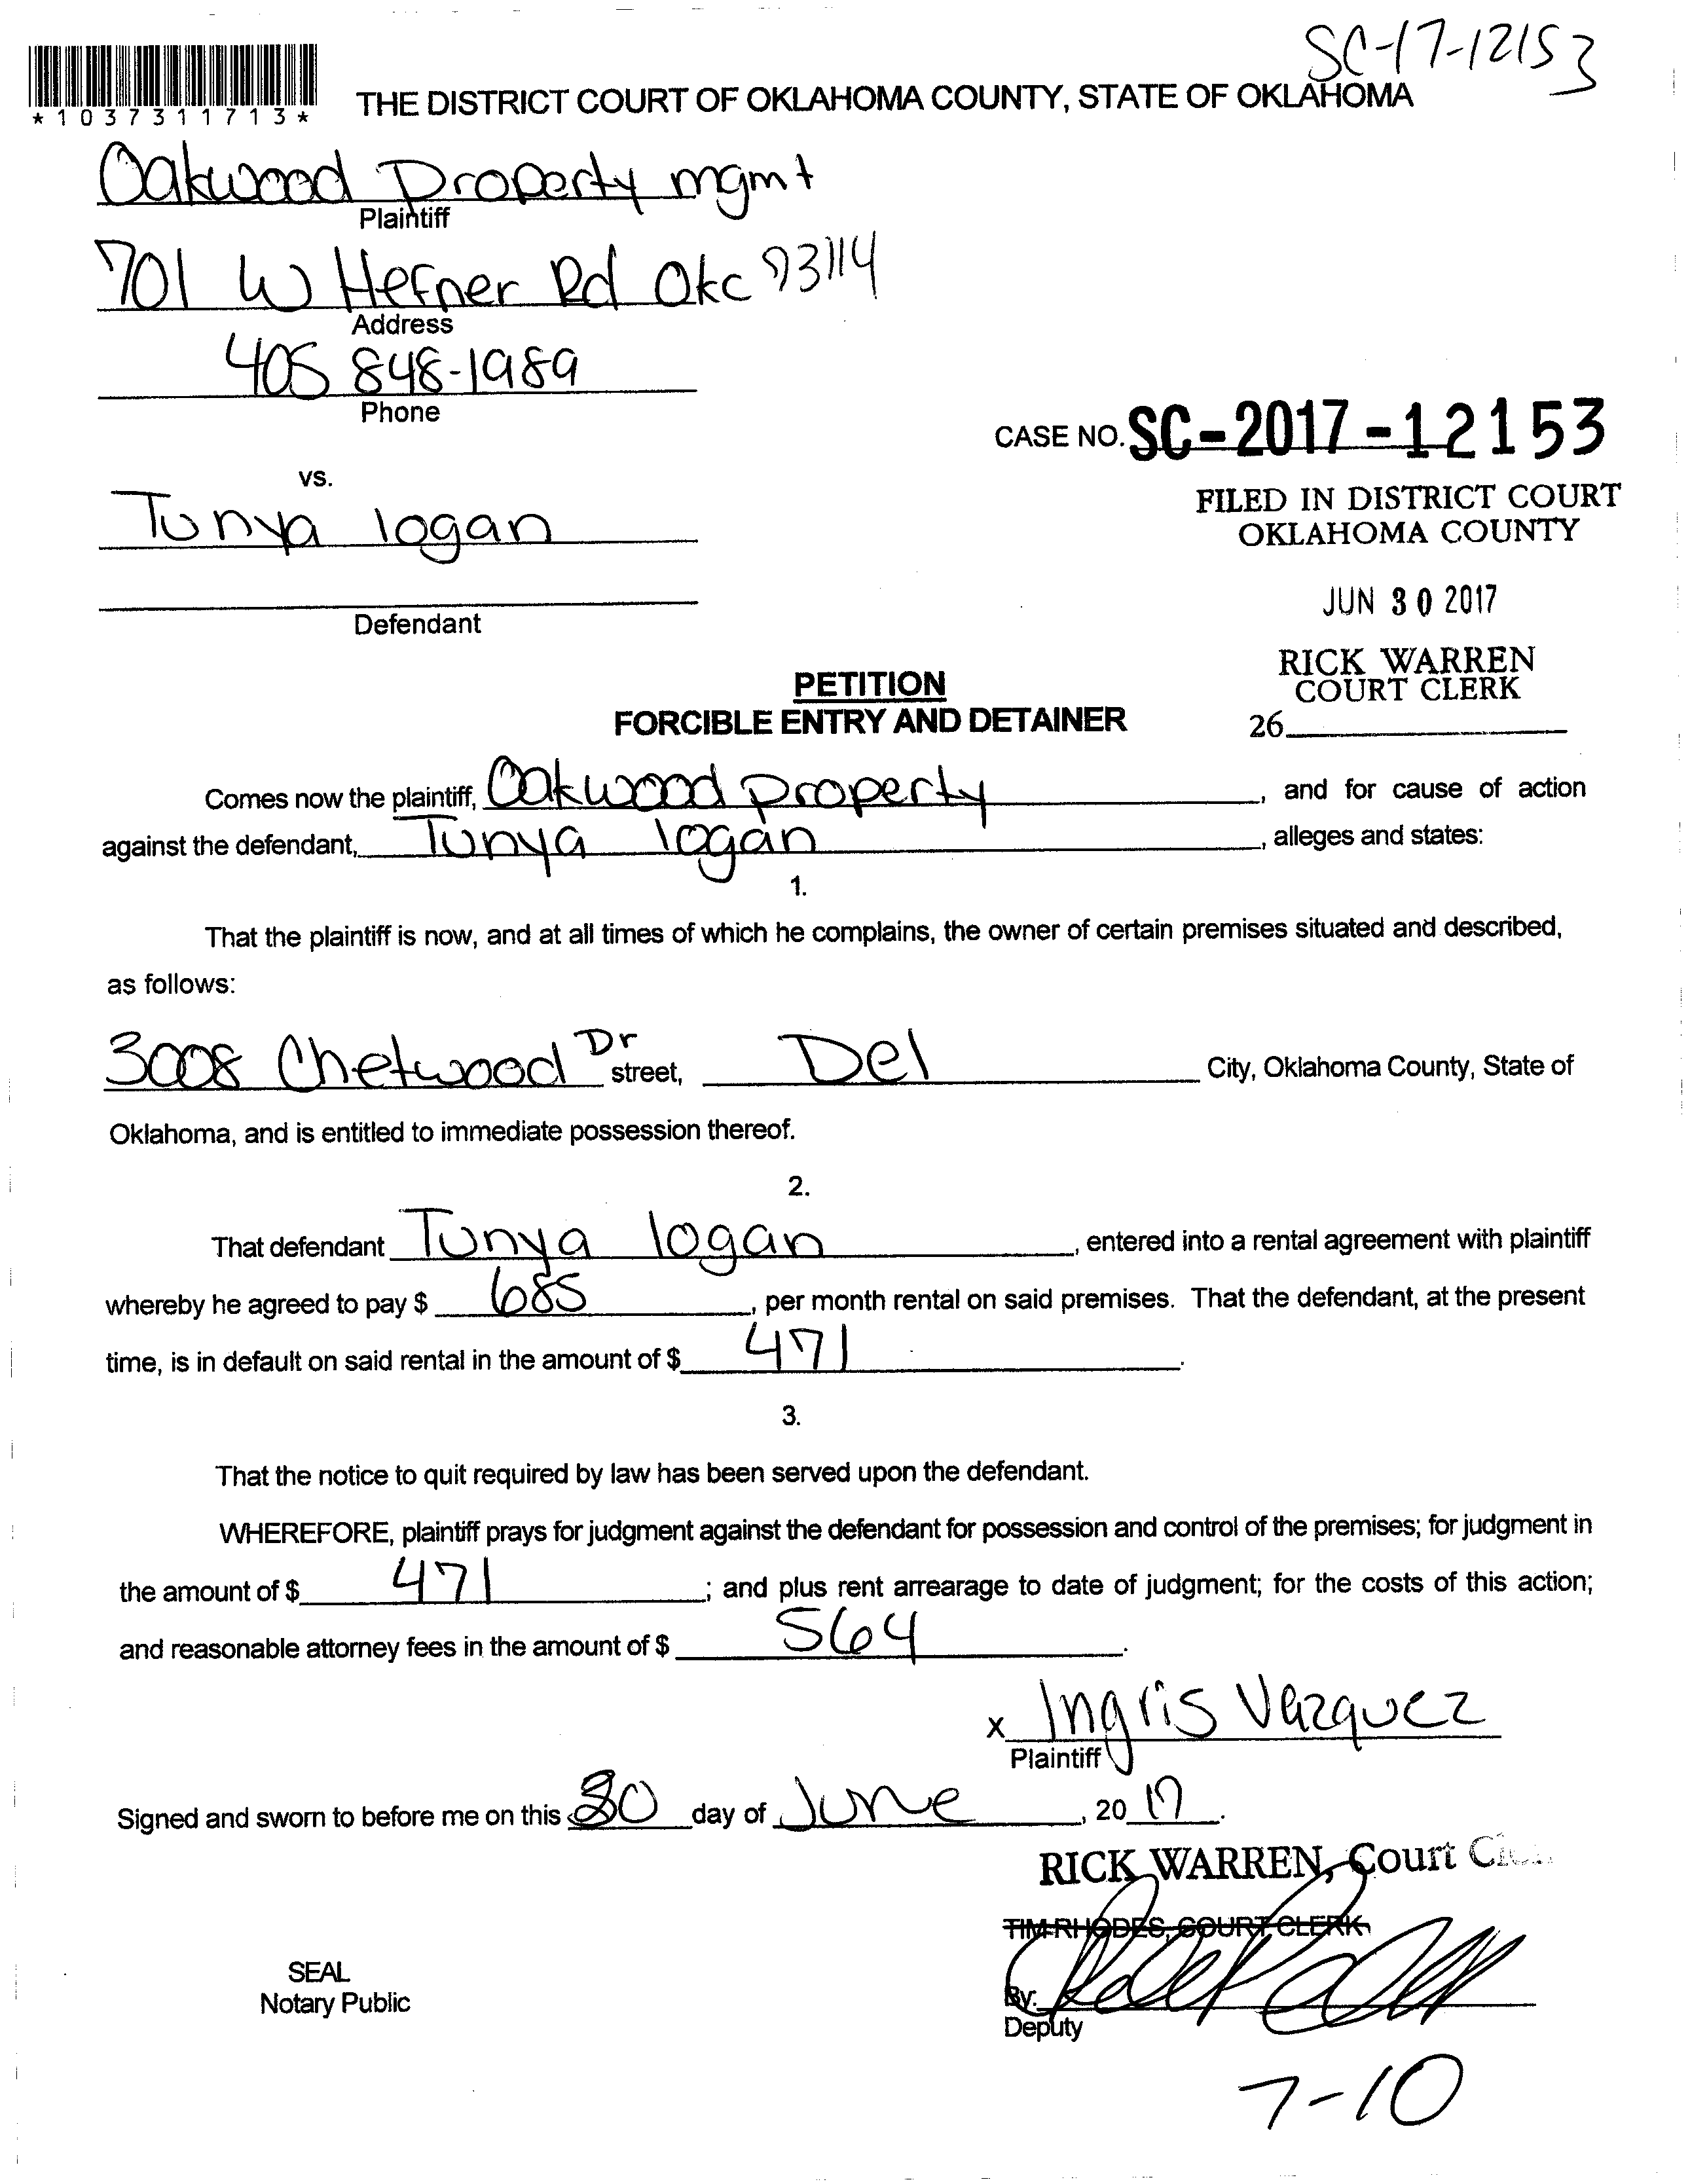 SC-17-12153
*1037311713*
THE DISTRICT COURT OF OKLAHOMA COUNTY, STATE OF OKLAHOMA
Oakwood Property mgmt
Plaintiff
701 W Hefner Rd Okc 73114
Address
405 848-1989
Phone
CASE NO. SC-2017-12153
vs.
FILED IN DISTRICT COURT
OKLAHOMA COUNTY
Tunya logan
JUN 30 2017
Defendant
RICK WARREN
COURT CLERK
26
PETITION
FORCIBLE ENTRY AND DETAINER
Comes now the plaintiff, Oakwood property, and for cause of action
against the defendant, Tunya logan, alleges and states:
1.
That the plaintiff is now, and at all times of which he complains, the owner of certain premises situated and described,
as follows:
3008 Chetwood Dr street, Del City, Oklahoma County, State of
Oklahoma, and is entitled to immediate possession thereof.
2.
That defendant Tunya logan, entered into a rental agreement with plaintiff
whereby he agreed to pay $ 685, per month rental on said premises. That the defendant, at the present
time, is in default on said rental in the amount of $ 471.
3.
That the notice to quit required by law has been served upon the defendant.
WHEREFORE, plaintiff prays for judgment against the defendant for possession and control of the premises; for judgment in
the amount of $ 471; and plus rent arrearage to date of judgment; for the costs of this action;
and reasonable attorney fees in the amount of $ 564.
x Ingris Vazquez
Plaintiff
Signed and sworn to before me on this 30 day of June, 20 17.
RICK WARREN, Court
TIM RHODES, COURT CLERK
SEAL
Notary Public
By:
Deputy
7-10